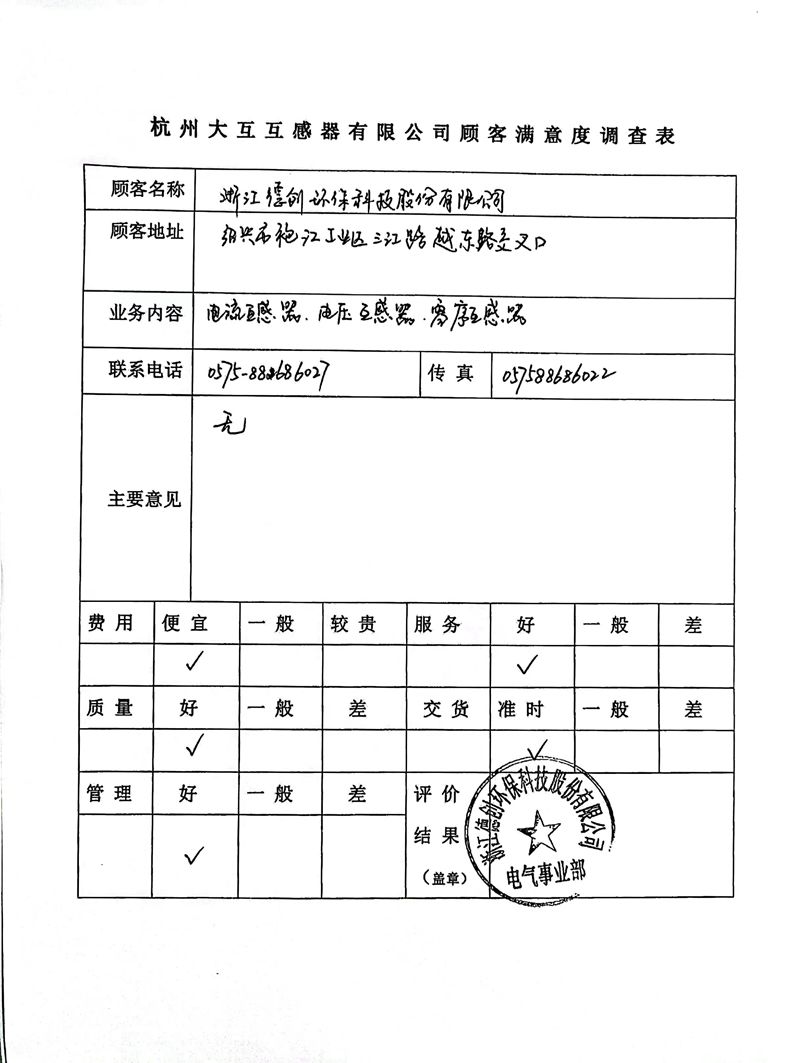 杭州大互互感器有限公司顾客满意度调查表
顾客名称 浙江德创环保科技股份有限公司
顾客地址 绍兴市袍江工业区三江路越东路交叉口
业务内容 电流互感器、电压互感器、零序互感器
联系电话 0575-88686027 传真 057588686022
主要意见 无
费用 便宜 一般 较贵 服务 好 一般 差
✓ ✓
质量 好 一般 差 交货 准时 一般 差
✓ ✓
管理 好 一般 差 评价
结果
✓
(盖章)
浙江德创环保科技股份有限公司
电气事业部